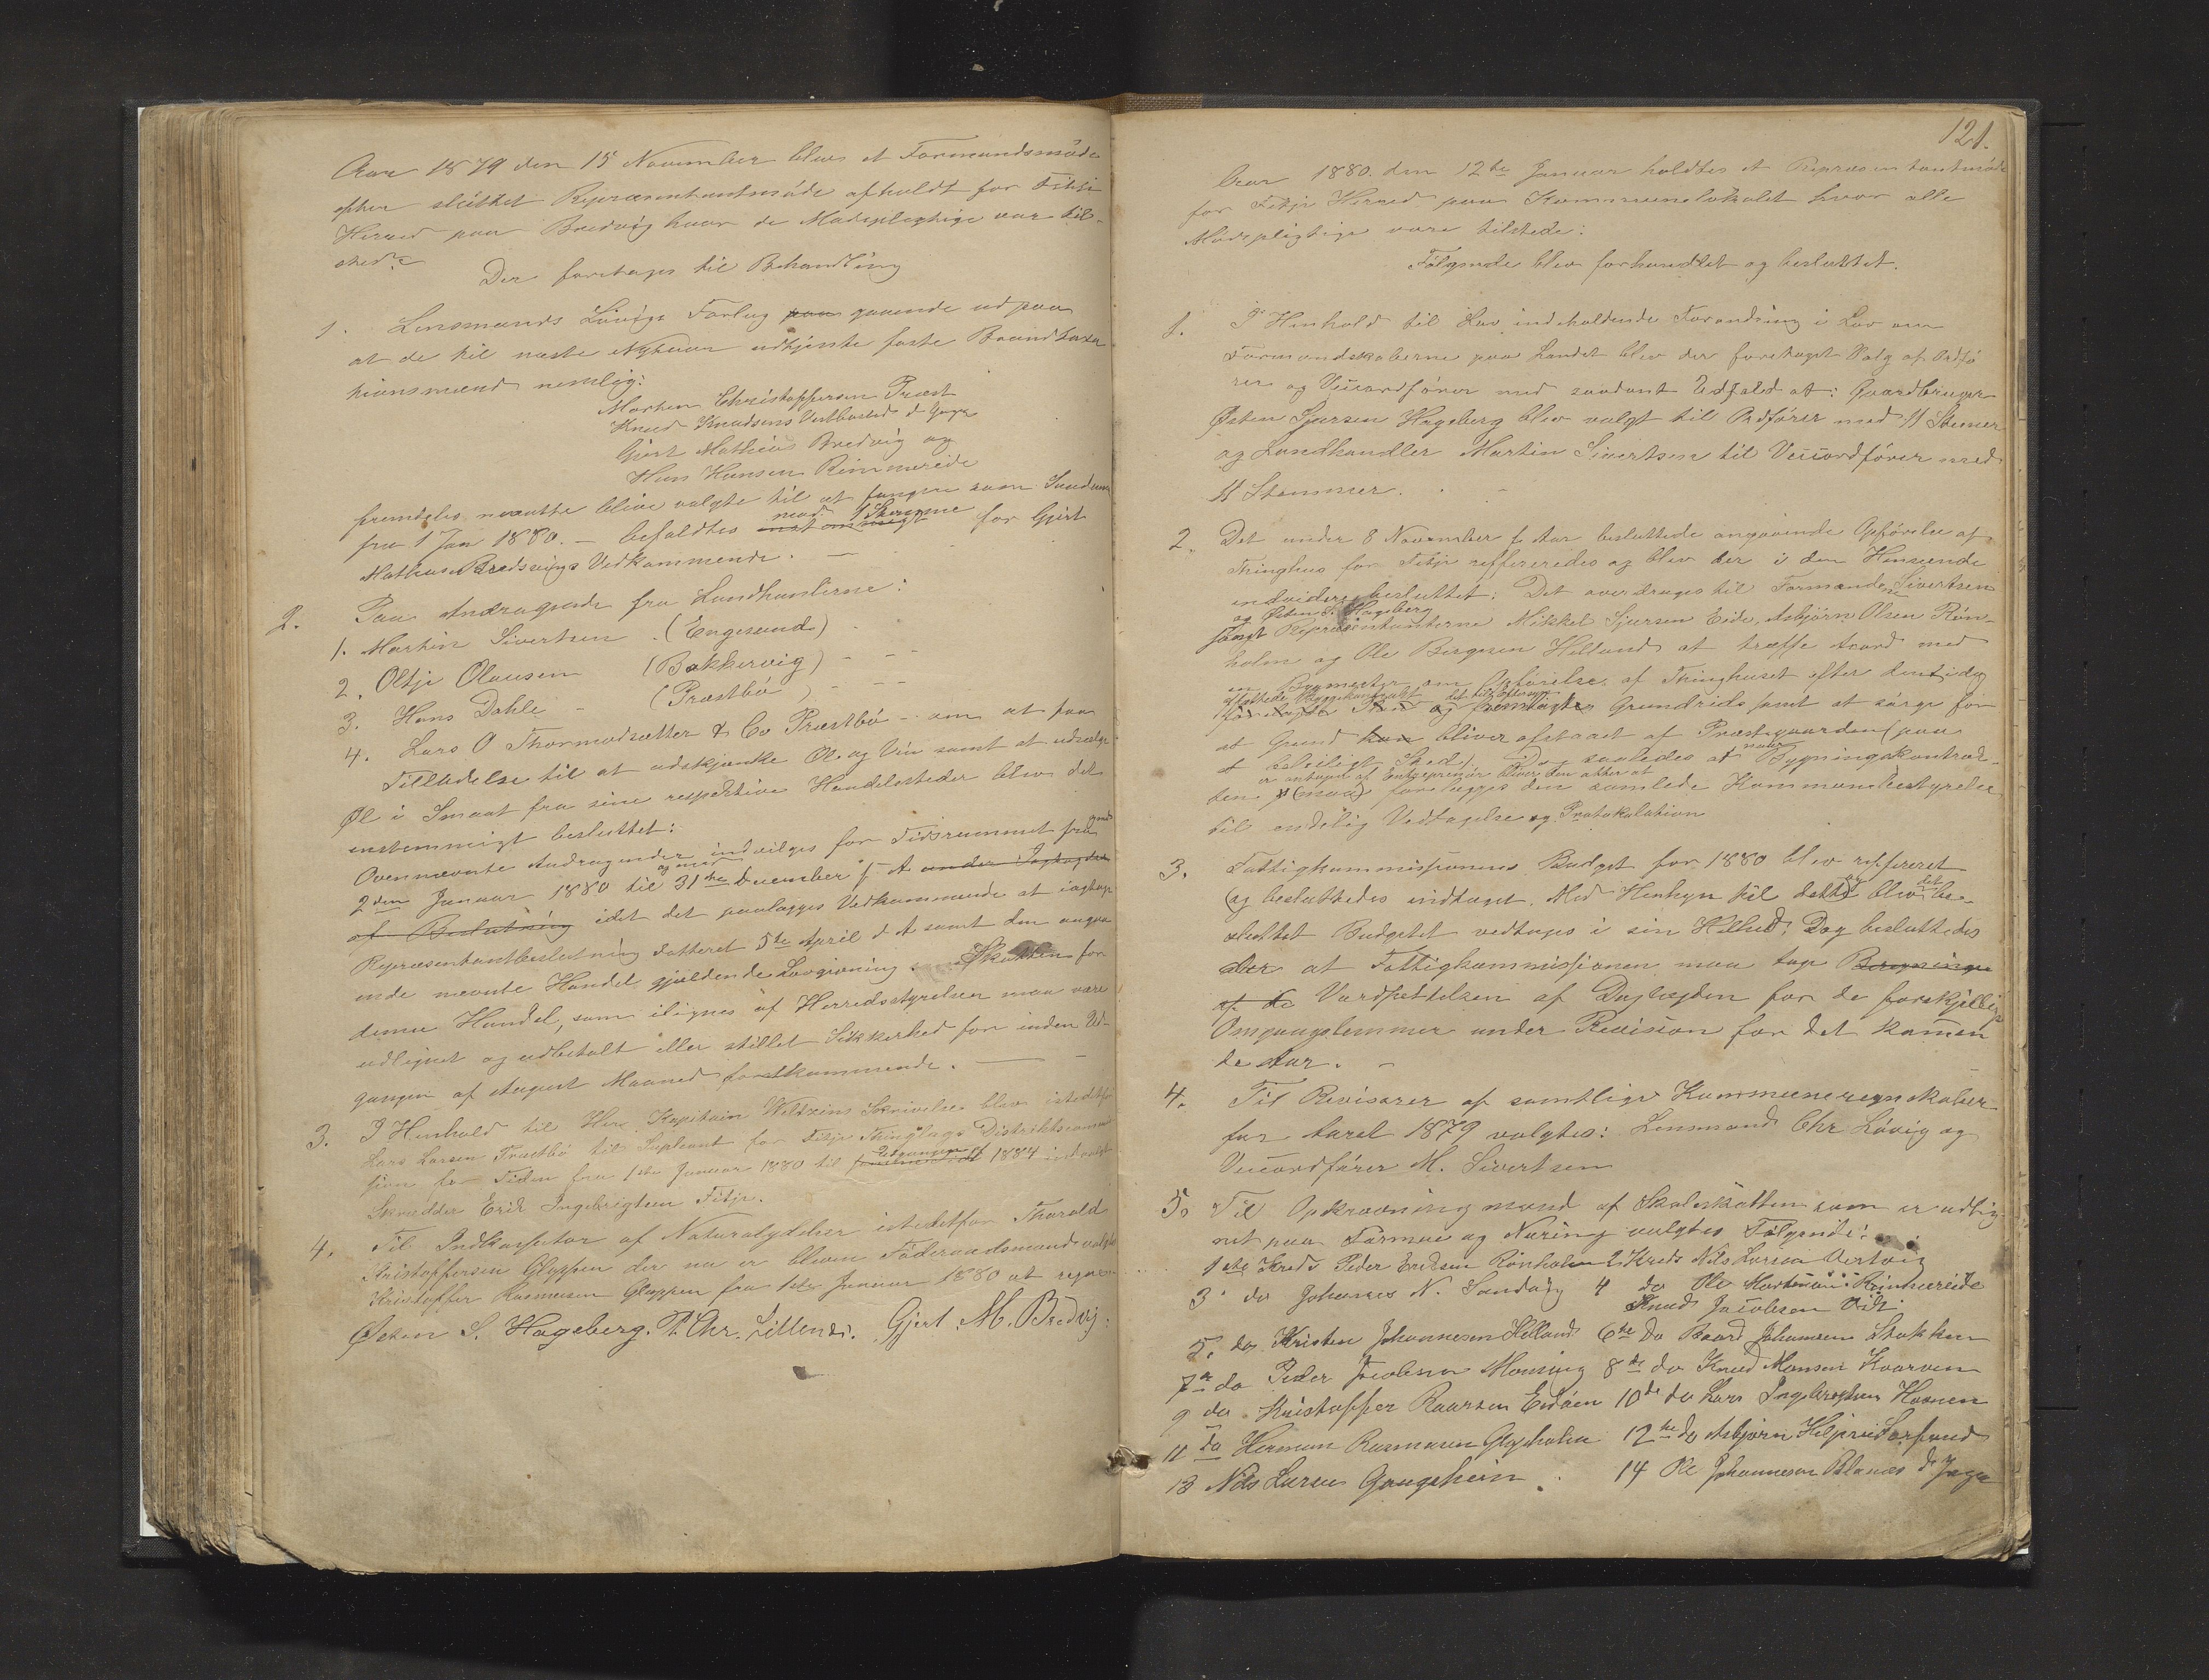 Aar 1879 den 15 November blev et Formandsmøde
efter sluttet Repræsentantmøde afholdt for Fitje
Herred paa Bredvig hvor de Mødepligtige var til-
stede
Der foretages til Behandling
1. Lensmands Løvigs Forlag paa gaaende ud paa
at de til næste Nytaar udtjente faste Brandtaxa
tionsmænd nemlig:
Morten Christoffersen Præst
Knud Knudsens Vestbøstad d Yngre
Gjert Mathias Bredvig og
Hans Hansen Rimmereide
fremdeles nævnte blive valgte til at fungere som Saadanne
fra 1 Jan 1880. – befaldtes enstemmigt med 1 Stemme for Gjert
Mathias Bredvigs Vedkommende. –
2. Paa Andragende fra Landhanlerne:
1. Martin Sivertsen (Engesund)
2. Oltje Olausen (Bakkervig) – – –
3. Hans Dahle – (Præstbø) – – –
4. Lars O Thormodsætter & Co Præstbø – om at faa
Tilladelse til at udskjænke Øl. og Vin samt at udsælge
Øl i Smaat fra sine respektive Handelssteder blev det
enstemmigt besluttet:
Ovennævnte Andragender indvilges for Tidsrummet fra
2den Januar 1880 til og med 31te December f. A under Iagtagelse
af Beslutning idet det paalægges Vedkommende at iagtage
Repræsentantbeslutning datteret 5te April d A samt den angaa
ende nævnte Handel gjældende Lovgivning Skatten for
denne Handel, som ilignes af Herredsstyrelsen maa være
udlignet og udbetalt eller stillet Sikkerhed for inden Ud-
gangen af August Maaned førstkommende. –
3. I Henhold til Herr Kapitain Weltzins Skrivelse blev istedetfor
Lars Larsen Præstbø til Supleant for Fitje Thinglags Distriktscommis
sion for Tiden fra 1ste Januar 1880 til Udgangen af 1884 indvalgt
Skrædder Erik Ingebrigtsen Fitje.
4. Til Indkassator af Naturalydelser istedetfor Thorald
Kristoffersen Gloppen der nu er bleven Føderaadsmand valgtes
Kristoffer Rasmussen Gloppen fra 1ste Januar 1880 at regne.
Østen S. Hageberg. P. Chr. Lillenes. Gjert M. Bredvig.
121.
Aar 1880 den 12te Januar holdtes et Repræsentantmøde
for Fitje Herred paa Kommunelokalet hvor alle
Mødepligtige vare tilstede:
Følgende blev forhandlet og besluttet.
1. I Henhold til Lov indeholdende Forandring i Lov om
Formandskaberne paa Landet blev der foretaget Valg af Ordfø
rer og Viceordfører med saadant Udfald at: Gaardbruger
Østen Sjursen Hageberg blev valgt til Ordfører med 11 Stemer
og Landhandler Martin Sivertsen til Viceordfører med
11 Stemmer. –
2. Det under 8 November f. Aar besluttede angaaende Opførelse af
Thinghus for Fitje reffereredes og blev der i den Henseende
endvidere besluttet: Det overdrages til Formændene Sivertsen
og Østen S. Hageberg
samt Repræsentanterne Mikkel Sjursen Eide, Asbjørn Olsen Røn-
holm og Ole Børgesen Helland at træffe Acord med
en Bygmester om Opførelse af Thinghuset efter den idag
sluttede Byggekontrakt det tilføiede
forelagte Plan og fremlagte Grundrids samt at sørge for
at Grund kan bliver afstaaet af Præstegaarden (paa
et beleiligt Sted). Dog saaledes at naar Bygningskontrak-
er antagen af Entreprenør bliver den atter at
ten (maa) forelægges den samlede Kommunebestyrelse
til endelig Vedtagelse og Protokolation
3. Fattigkommissionens Budget for 1880 blev reffereret
(og besluttedes indtaget. Med Henhyn til dette) og blev det be-
sluttet Budgetet vedtages i sin Helhed. Dog besluttedes
der at Fattigkommissionen maa tage Beregningen
af de Værdsættelsen af Daglægden for de forskjellige
Omgangslemmer under Revision for det kommen
de Aar. –
4. Til Revisorer af samtlige Kommuneregnskaber
for Aaret 1879 valgtes: Lensmand Chr Løvig og
Viceordfører M. Sivertsen
5. Til Opkrævningsmænd af Skoleskatten som er udlig
net paa Formue og Næring valgtes Følgende:
1ste Kreds Peder Eriksen Rønholm 2 Kreds Nils Larsen Aartvig
3 do Johannes N. Sandvig 4 do Ole Mortensen Rimmereide
Knud Jacobsen Vik
5. do Kristen Johannesen Helland 6te Do Baard Johannesen Stokken
7de do Peder Jacobsen Mousing 8de do Knud Monsen Hovroen
9 do Kristoffer Raarsen Eidøen 10de do Lars Ingebrigtsen Hovnen
11 do Herman Rasmusen Glopholm 12te do Asbjørn Hiljried
13 Nils Larsen Gaugshein. 14 Ole Johannesen Blanæs d Yngre